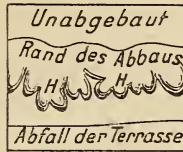 Unabgebaut
Rand des Abbaus
H H
Abfall der Terrasse